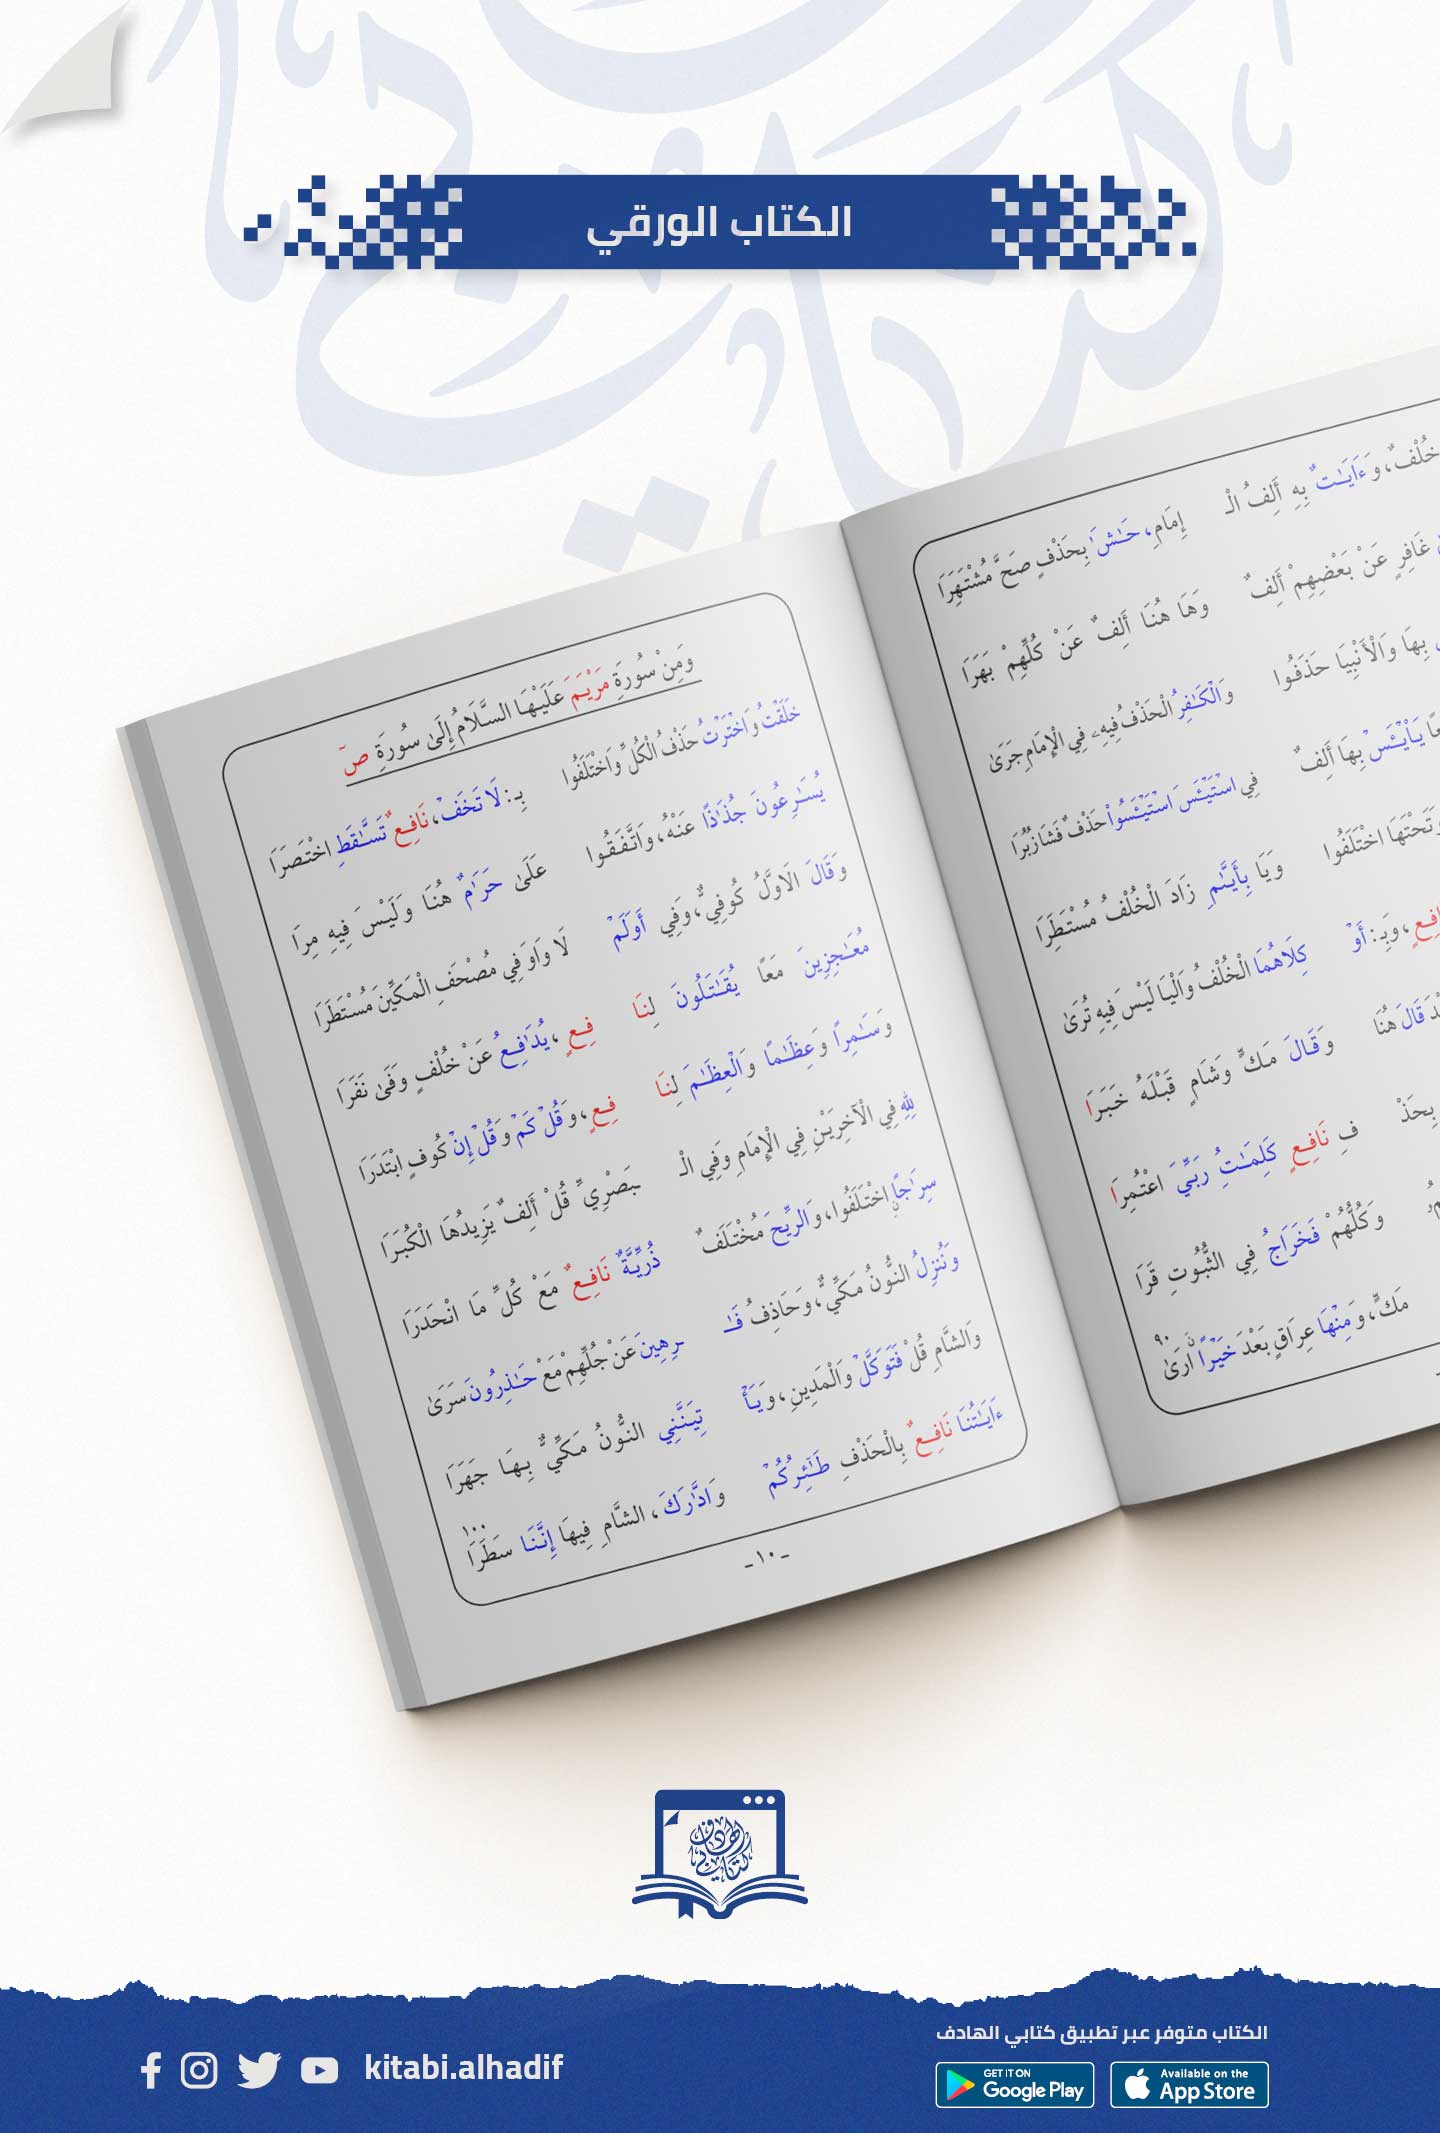 الكتاب الورقي
خُلْفٌ، وَءَايَـٰتٌ بِهِ أَلِفُ الْـ إِمَامِ، حَـٰشَ بِحَذْفٍ صَحَّ مُشْتَهِرَا
غَافِرٍ عَنْ بَعْضِهِمْ أَلِفٌ وَهَا هُنَا أَلِفٌ عَنْ كُلِّهِمْ بَهَرَا
بِهَا وَالْأَنْبِيَا حَذَفُوا وَالْكَـٰفِرُ الْحَذْفُ فِيهِۦ فِي الْإِمَامِ جَرَىٰ
يَاْيْـَٔسْ بِهَا أَلِفٌ فِي اسْتَيْـَٔسَ اسْتَيْـَٔسُواْ حَذْفٌ فَشَا زُبُرَا
وَتَحْتَهَا اخْتَلَفُوا وَيَا بِأَيَّـٰمِ زَادَ الْخُلْفُ مُسْتَطِرَا
ـافِعٍ، وَبِـ: أَوْ كِلَاهُمَا الْخُلْفُ وَالْيَا لَيْسَ فِيهِ تُرَىٰ
قَالَ هُنَا وَقَالَ مَكٍّ وَشَامٍ قَبْلَهُ خَبَرَا
بِحَذْ فِ نَافِعٍ كَلِمَـٰتُ رَبِّي اعْتُمِرَا
وَكُلُّهُمْ فَخَرَاجُ فِي الثُّبُوتِ قَرَا
مَكٍّ، وَمِنْهَا عِرَاقٍ بَعْدَ خَيْرًا ارَىٰ ٩٠
وَمِنْ سُورَةِ مَرْيَمَ عَلَيْهَا السَّلَامُ إِلَىٰ سُورَةِ صٓ
خَلَقْتُ وَاخْتَرْتُ حَذْفُ الْكُلِّ وَاخْتَلَفُوا بِـ: لَا تَخَفْ، نَافِعٌ تَسَّـٰقَطِ اخْتَصَرَا
يُسَـٰرِعُونَ جُذَاذًا عَنْهُ، وَاتَّفَقُوا عَلَىٰ حَرَامٌ هُنَا وَلَيْسَ فِيهِ مِرَا
وَقَالَ الَاوَّلُ كُوفِيٌّ، وَفِي أَوَلَمْ لَا وَاوَ فِي مُصْحَفِ الْمَكِّينَ مُسْتَطَرَا
مُعَـٰجِزِينَ مَعًا يُقَـٰتَلُونَ لِنَا فِعٍ، يُدَافِعُ عَنْ خُلْفٍ وَفَىٰ نَفَرَا
وَسَـٰمِرًا وَعِظَـٰمًا وَالْعِظَـٰمَ لِنَا فِعٍ، وَقُلْ كَمْ وَقُلْ إِنْ كُوفٍ ابْتَدَرَا
لِلَّهِ فِي الْآخِرَيْنِ فِي الْإِمَامِ وَفِي الْـ ـبَصْرِيِّ قُلْ أَلِفٌ يَزِيدُهَا الْكُبَرَا
سِرَاجًا اخْتَلَفُوا، وَالرِّيحَ مُخْتَلَفٌ ذُرِّيَّةٌ نَافِعٌ مَعْ كُلِّ مَا انْحَدَرَا
وَنُنْزِلُ النُّونُ مَكِّيٌّ، وَحَاذِفُ فَـٰ ـرِهِينَ عَنْ جُلِّهِمْ مَعْ حَـٰذِرُونَ سَرَىٰ
وَالشَّامِ قُلْ فَتَوَكَّلْ وَالْمَدِينِ، وَيَأْ تِيَنَّنِي النُّونُ مَكِّيٌّ بِهَا جَهَرَا
ءَايَـٰتُنَا نَافِعٌ بِالْحَذْفِ طَـٰٓئِرُكُمْ وَادَّارَكَ، الشَّامِ فِيهَا إِنَّنَا سَطَرَا ١٠٠
ـ ١٠ ـ
كتابي الهادف
الكتاب متوفر عبر تطبيق كتابي الهادف
kitabi.alhadif
GET IT ON
Google Play
Available on the
App Store